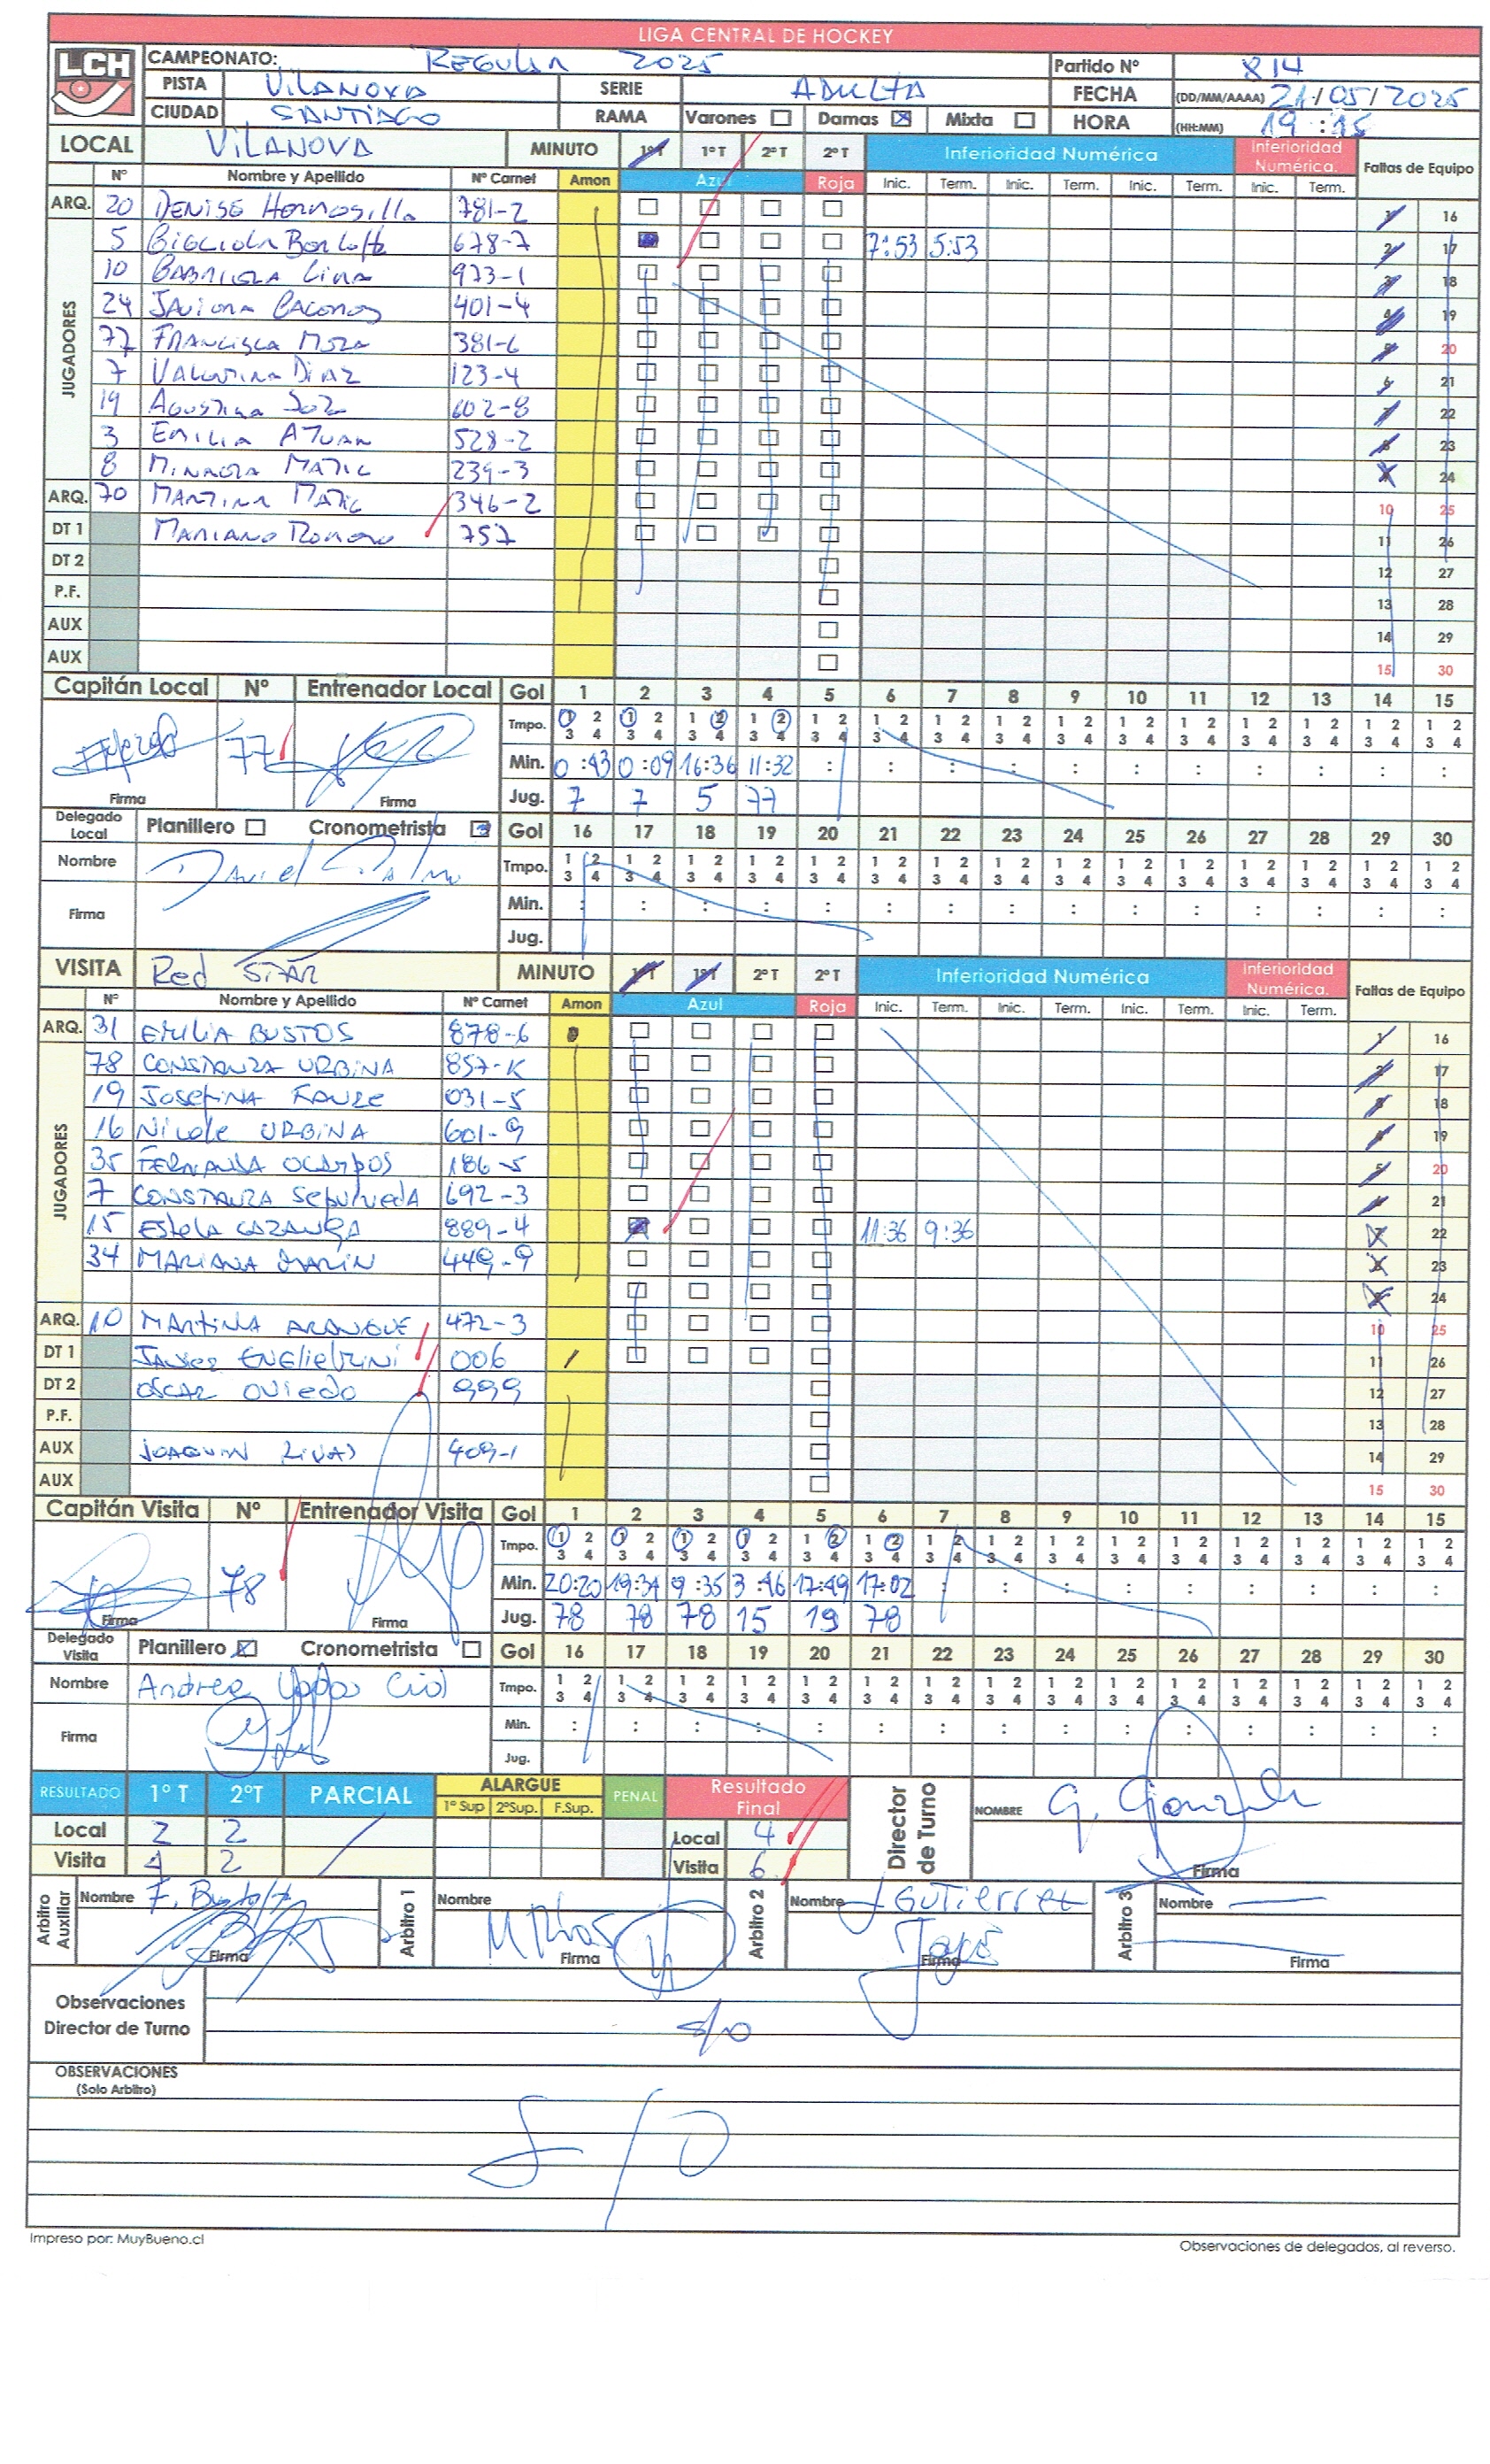 LIGA CENTRAL DE HOCKEY
LCH CAMPEONATO: REGULAR 2025 Partido Nº 814
PISTA VILANOVA SERIE ADULTA FECHA (DD/MM/AAAA) 21/05/2025
CIUDAD SANTIAGO RAMA Varones Damas Mixta HORA (HH:MM) 19:15
LOCAL VILANOVA MINUTO 1ºT 1ºT 2ºT 2ºT Inferioridad Numérica Inferioridad Numérica. Faltas de Equipo
Nº Nombre y Apellido Nº Carnet Amon Azul Roja Inic. Term. Inic. Term. Inic. Term. Inic. Term.
ARQ. 20 DENISE Hermosilla 781-2 1 16
JUGADORES
5 678-7 7:53 5:53 2 17
10 973-1 3 18
24 401-4 4 19
77 FRANCISCA Mora 381-6 5 20
7 VALENTINA DIAZ 123-4 6 21
19 AGUSTINA 602-8 7 22
3 EMILIA ATUAN 528-2 8 23
8 MATIC 239-3 9 24
ARQ. 70 MARTINA MATIC 346-2 10 25
DT 1 MARIANO Romero 757 11 26
DT 2 12 27
P.F. 13 28
AUX 14 29
AUX 15 30
Capitán Local Nº Entrenador Local Gol 1 2 3 4 5 6 7 8 9 10 11 12 13 14 15
77 Tmpo. 1 2 1 2 1 2 1 2 1 2 1 2 1 2 1 2 1 2 1 2 1 2 1 2 1 2 1 2 1 2
3 4 3 4 3 4 3 4 3 4 3 4 3 4 3 4 3 4 3 4 3 4 3 4 3 4 3 4 3 4
Min. 0:43 0:09 16:36 11:32 : : : : : : : : : : :
Firma Firma Jug. 7 7 5 77
Delegado Local Planillero Cronometrista Gol 16 17 18 19 20 21 22 23 24 25 26 27 28 29 30
Nombre Daniel Tmpo. 1 2 1 2 1 2 1 2 1 2 1 2 1 2 1 2 1 2 1 2 1 2 1 2 1 2 1 2 1 2
3 4 3 4 3 4 3 4 3 4 3 4 3 4 3 4 3 4 3 4 3 4 3 4 3 4 3 4 3 4
Firma Min. : : : : : : : : : : : : : : :
Jug.
VISITA Red STAR MINUTO 1ºT 1ºT 2ºT 2ºT Inferioridad Numérica Inferioridad Numérica. Faltas de Equipo
Nº Nombre y Apellido Nº Carnet Amon Azul Roja Inic. Term. Inic. Term. Inic. Term. Inic. Term.
ARQ. 31 EMILIA BUSTOS 878-6 1 16
JUGADORES
78 CONSTANZA URBINA 857-K 2 17
19 JOSEFINA 031-5 3 18
16 Nicole URBINA 601-9 4 19
35 FERNANDA OCAMPOS 186-5 5 20
7 CONSTANZA Sepulveda 692-3 6 21
15 Estela 889-4 11:36 9:36 7 22
34 MARIANA MARÍN 449-9 8 23
9 24
ARQ. 10 MARTINA ARANGUE 472-3 10 25
DT 1 006 11 26
DT 2 OSCAR OVIEDO 999 12 27
P.F. 13 28
AUX JOAQUIN RIVAS 409-1 14 29
AUX 15 30
Capitán Visita Nº Entrenador Visita Gol 1 2 3 4 5 6 7 8 9 10 11 12 13 14 15
78 Tmpo. 1 2 1 2 1 2 1 2 1 2 1 2 1 2 1 2 1 2 1 2 1 2 1 2 1 2 1 2 1 2
3 4 3 4 3 4 3 4 3 4 3 4 3 4 3 4 3 4 3 4 3 4 3 4 3 4 3 4 3 4
Min. 20:20 19:34 9:35 3:46 17:49 17:02 : : : : : : : : :
Firma Firma Jug. 78 78 78 15 19 78
Delegado Visita Planillero Cronometrista Gol 16 17 18 19 20 21 22 23 24 25 26 27 28 29 30
Nombre Andrea Cid Tmpo. 1 2 1 2 1 2 1 2 1 2 1 2 1 2 1 2 1 2 1 2 1 2 1 2 1 2 1 2 1 2
3 4 3 4 3 4 3 4 3 4 3 4 3 4 3 4 3 4 3 4 3 4 3 4 3 4 3 4 3 4
Firma Min. : : : : : : : : : : : : : : :
Jug.
RESULTADO 1º T 2ºT PARCIAL ALARGUE PENAL Resultado Final Director de Turno NOMBRE G. Gonzalez
1º Sup 2ºSup. F.Sup.
Local 2 2 Local 4
Visita 4 2 Visita 6 Firma
Arbitro Auxiliar Nombre F. Firma Arbitro 1 Nombre M Rivas Firma Arbitro 2 Nombre J GUTIERREZ Firma Arbitro 3 Nombre Firma
Observaciones Director de Turno
s/o
OBSERVACIONES
(Solo Arbitro)
S/O
Impreso por: MuyBueno.cl Observaciones de delegados, al reverso.